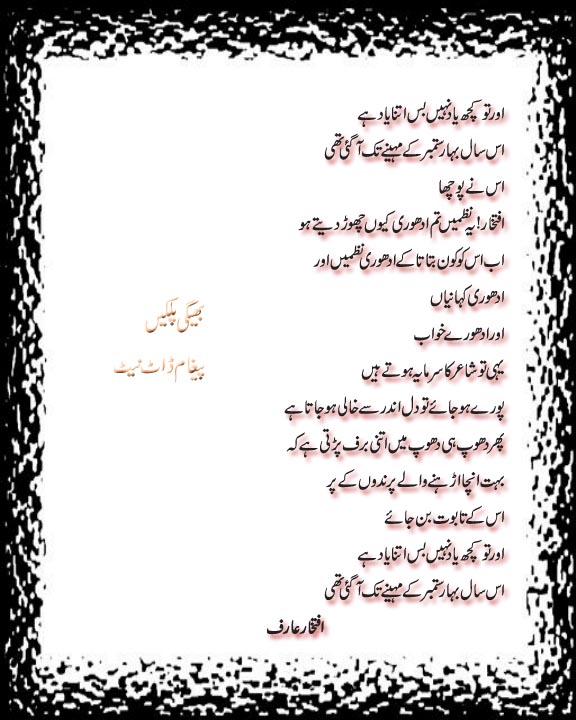 اور تو کچھ یاد نہیں بس اتنا یاد ہے
اس سال بہار ستمبر کے مہینے تک آ گئی تھی
اس نے پوچھا
افتخار! یہ نظمیں تم ادھوری کیوں چھوڑ دیتے ہو
اب اس کو کون بتاتا کے ادھوری نظمیں اور
ادھوری کہانیاں
اور ادھورے خواب
یہی تو شاعر کا سرمایہ ہوتے ہیں
پورے ہو جائے تو دل اندر سے خالی ہو جاتا ہے
پھر دھوپ ہی دھوپ میں اتنی برف پڑتی ہے کہ
بہت انچا اڑہنے والے پرندوں کے پر
اس کے تابوت بن جائے
اور تو کچھ یاد نہیں بس اتنا یاد ہے
اس سال بہار ستمبر کے مہینے تک آ گئی تھی
افتخار عارف
بھیگی پلکیں
پیغام ڈاٹ نیٹ